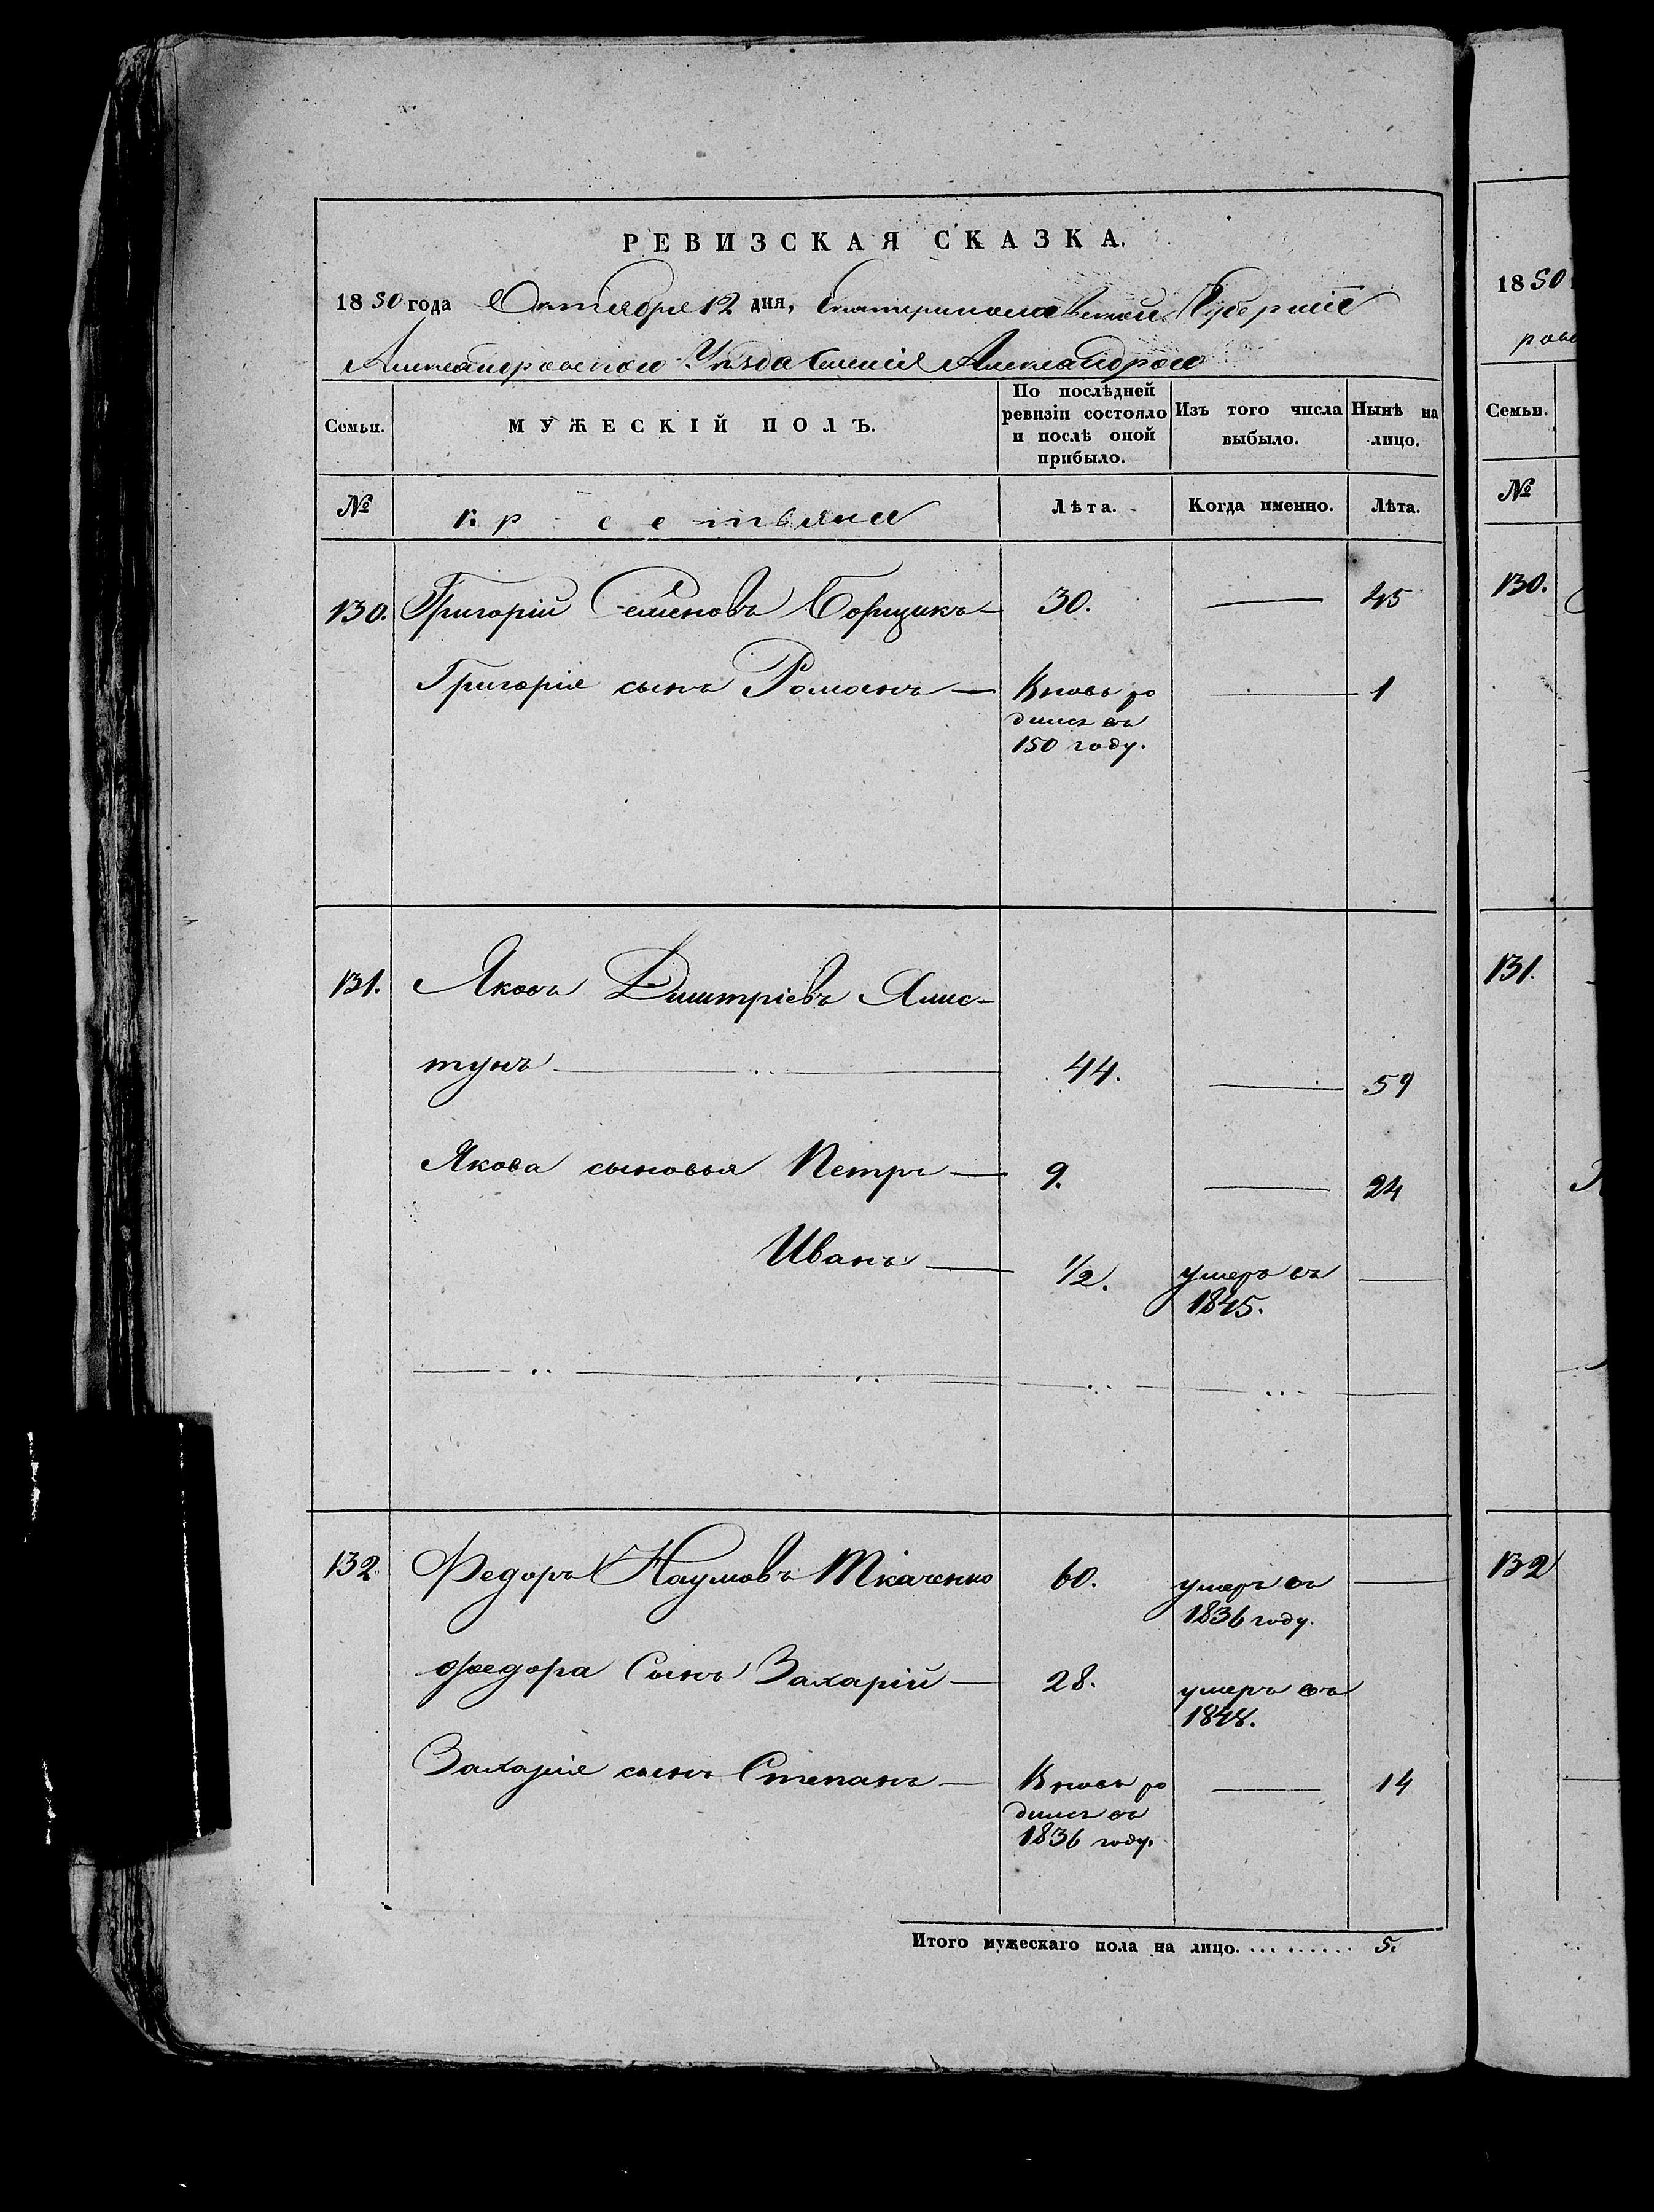 РЕВИЗСКАЯ СКАЗКА.
1850 года Октября 12 дня, Екатеринославской Губерніи
Александровского Уѣзда имения
Семьи.
МУЖЕСКІЙ ПОЛЪ.
По послѣдней
ревизіи состояло
и послѣ оной
прибыло.
Изъ того числа
выбыло.
Нынѣ на
лицо.
№
крестьяне
Лѣта.
Когда именно.
Лѣта.
130. Григорій Семеновъ Борщикъ — 30. — 45
Григорія сынъ Романъ — Вновь ро — 1
дился въ
150 году.
131. Яковъ Дмитріевъ
тунъ — 44. — 59
Якова сыновья Петръ — 9. — 24
Иванъ — 1/2. умеръ въ —
1845.
132. Федоръ Наумовъ Ткаченко 60. умеръ въ —
1836 году.
Федора Сынъ Захарій — 28. умеръ въ
1848.
Захарія сынъ Степанъ — Вновь ро — 14
дился въ
1836 году.
Итого мужескаго пола на лицо. . . . . . . . . . 5.
1850
рово
Семьи.
№
130.
131.
132